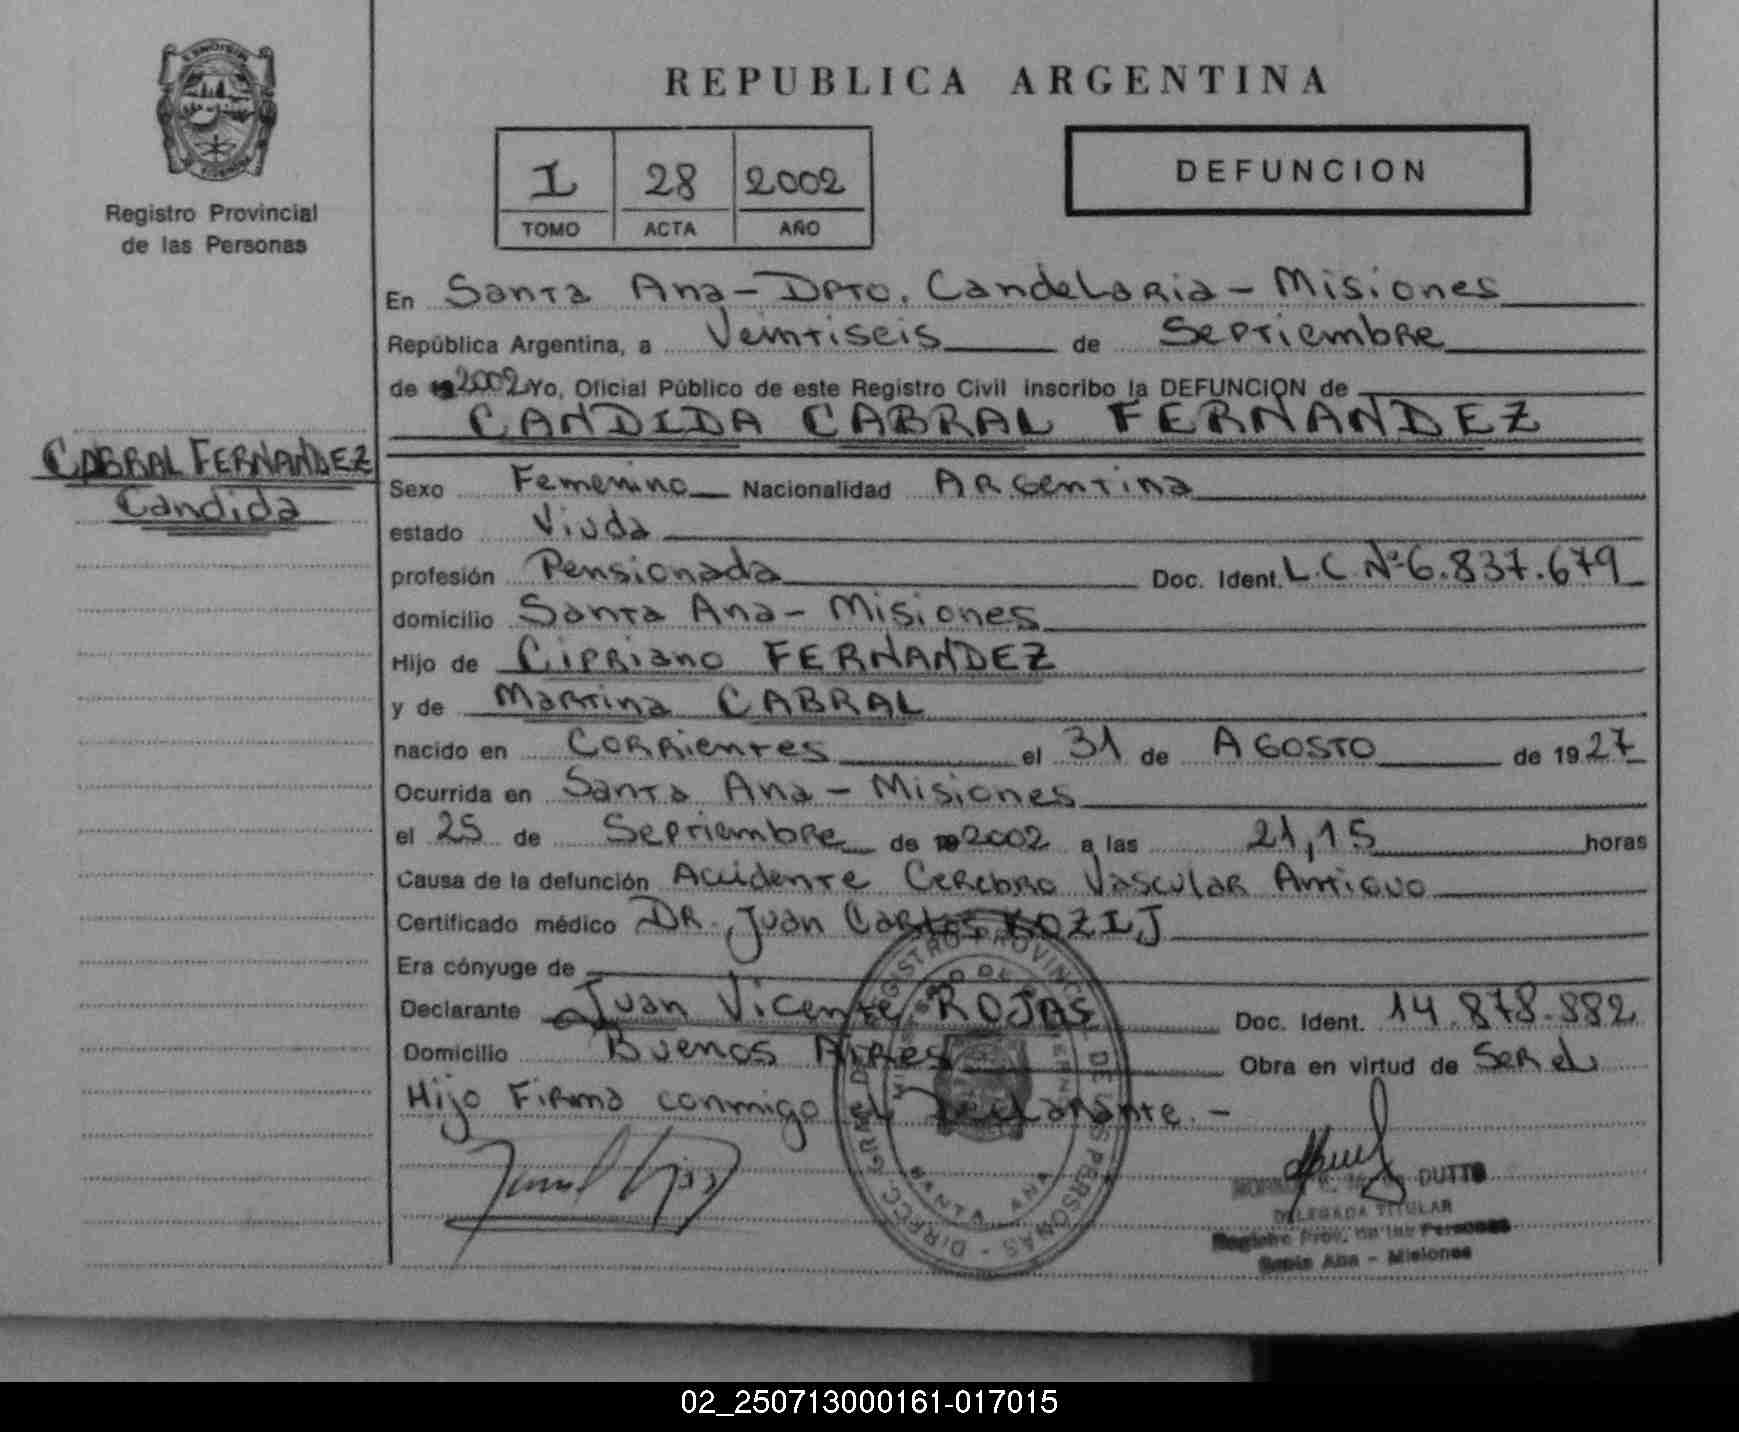 REPUBLICA ARGENTINA
Registro Provincial
de las Personas
I 28 2002
TOMO ACTA AÑO
DEFUNCION
En Santa Ana - Dpto. Candelaria - Misiones
República Argentina, a Veintiseis de Septiembre
de 2002 Yo, Oficial Público de este Registro Civil inscribo la DEFUNCION de
CANDIDA CABRAL FERNANDEZ
CABRAL FERNANDEZ
Candida
Sexo Femenino Nacionalidad Argentina
estado Viuda
profesión Pensionada Doc. Ident. L.C. Nº 6.837.679
domicilio Santa Ana - Misiones
Hijo de Cipriano FERNANDEZ
y de Martina CABRAL
nacido en Corrientes el 31 de Agosto de 1927
Ocurrida en Santa Ana - Misiones
el 25 de Septiembre de 2002 a las 21,15 horas
Causa de la defunción Accidente Cerebro Vascular Antiguo
Certificado médico DR. Juan Carlos KOZIJ
Era cónyuge de
Declarante Juan Vicente ROJAS Doc. Ident. 14.878.882
Domicilio Buenos Aires Obra en virtud de Ser el
Hijo Firma conmigo el Declarante. -
REGISTRO PROVINCIAL DE LAS PERSONAS - DIRECC. GRAL. DE
SANTA ANA
DUTTO
DELEGADA TITULAR
Registro Prov. de las Personas
Santa Ana - Misiones
02_250713000161-017015